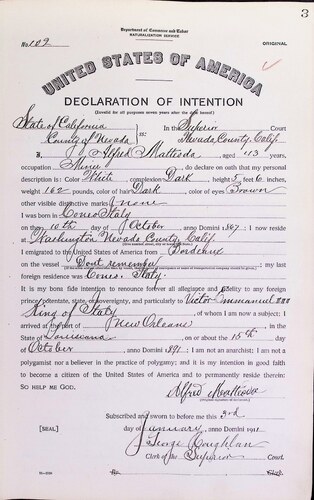 3
Department of Commerce and Labor
NATURALIZATION SERVICE
No. 109
ORIGINAL
UNITED STATES OF AMERICA
DECLARATION OF INTENTION
(Invalid for all purposes seven years after the date hereof)
State of California
County of Nevada
ss:
In the Superior Court
Nevada County, Calif.
I, Alfred Matteoda, aged 43 years,
occupation Miner, do declare on oath that my personal
description is: Color White, complexion Dark, height 5 feet 6 inches,
weight 162 pounds, color of hair Dark, color of eyes Brown
other visible distinctive marks none
I was born in Coneo Italy
on the 10th day of October, anno Domini 1867; I now reside
at Washington Nevada County, Calif.
I emigrated to the United States of America from Bordeaux
on the vessel Dont remember; my last
foreign residence was Coneo, Italy.
It is my bona fide intention to renounce forever all allegiance and fidelity to any foreign
prince, potentate, state, or sovereignty, and particularly to Victor Emmanuel III
King of Italy, of whom I am now a subject; I
arrived at the port of New Orleans, in the
State of Louisiana, on or about the 15th day
of October, anno Domini 1891; I am not an anarchist; I am not a
polygamist nor a believer in the practice of polygamy; and it is my intention in good faith
to become a citizen of the United States of America and to permanently reside therein:
SO HELP ME GOD.
Alfred Matteoda
Subscribed and sworn to before me this 3rd
[SEAL]
day of January, anno Domini 1911
George Coughlan
Clerk of the Superior Court.